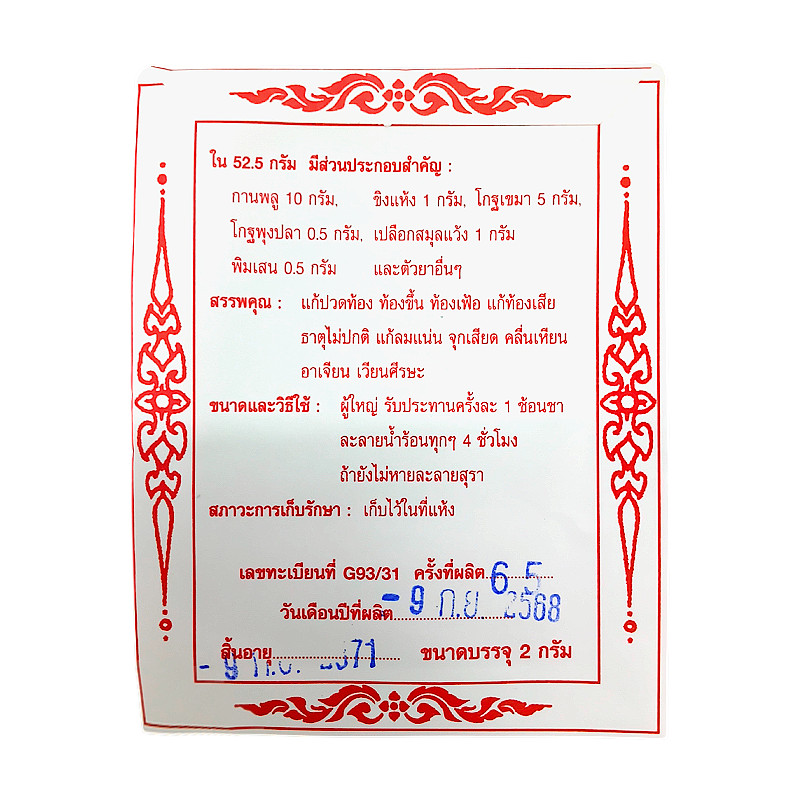 ใน 52.5 กรัม มีส่วนประกอบสำคัญ :
กานพลู 10 กรัม, ขิงแห้ง 1 กรัม, โกฐเขมา 5 กรัม,
โกฐพุงปลา 0.5 กรัม, เปลือกสมุลแว้ง 1 กรัม
พิมเสน 0.5 กรัม และตัวยาอื่นๆ
สรรพคุณ : แก้ปวดท้อง ท้องขึ้น ท้องเฟ้อ แก้ท้องเสีย
ธาตุไม่ปกติ แก้ลมแน่น จุกเสียด คลื่นเหียน
อาเจียน เวียนศีรษะ
ขนาดและวิธีใช้ : ผู้ใหญ่ รับประทานครั้งละ 1 ช้อนชา
ละลายน้ำร้อนทุกๆ 4 ชั่วโมง
ถ้ายังไม่หายละลายสุรา
สภาวะการเก็บรักษา : เก็บไว้ในที่แห้ง
เลขทะเบียนที่ G93/31 ครั้งที่ผลิต 65
วันเดือนปีที่ผลิต - 9 ก.ย. 2568
สิ้นอายุ - 9 ขนาดบรรจุ 2 กรัม